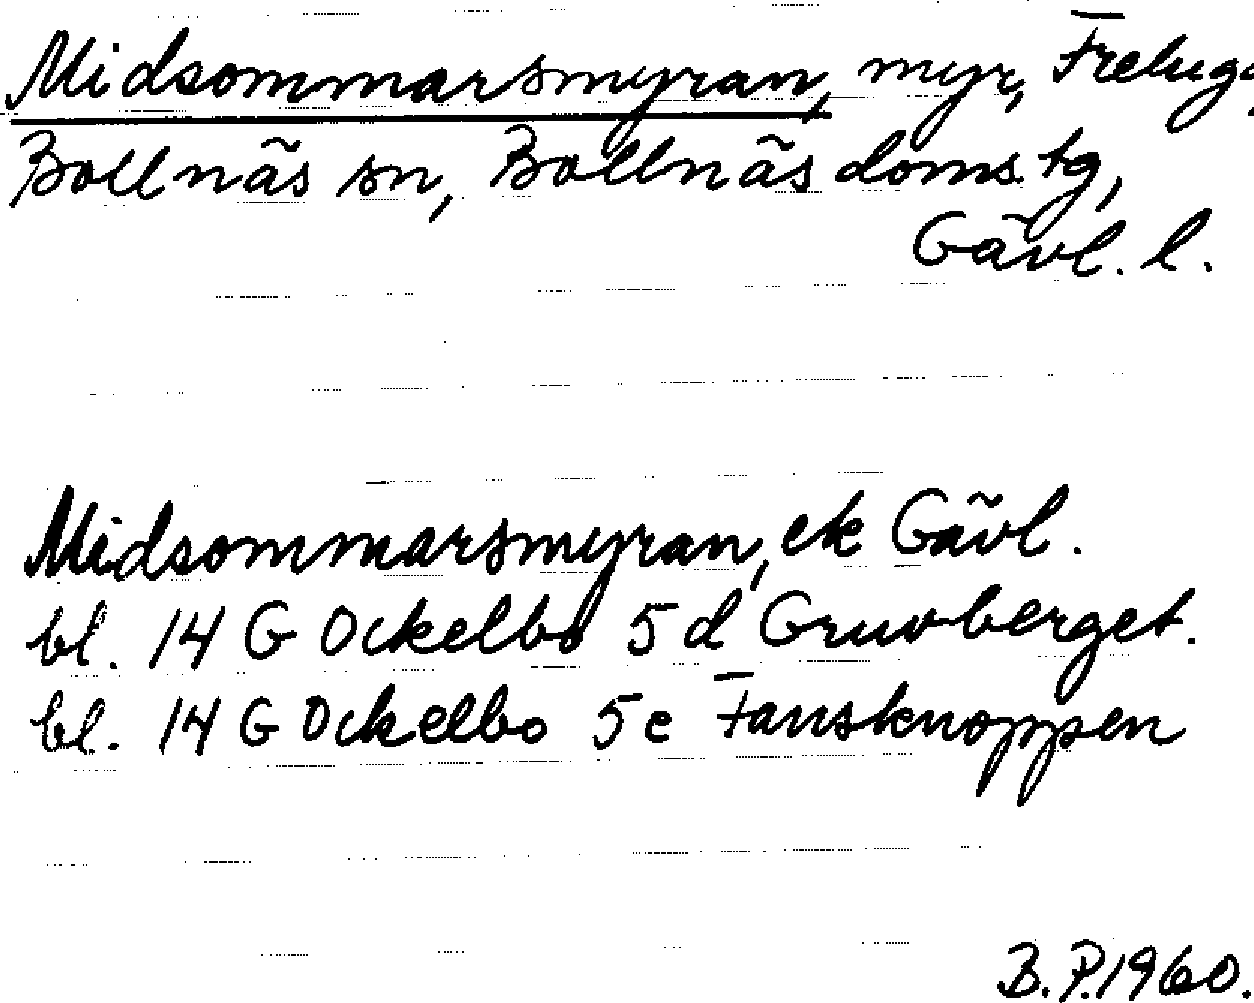 Midsommarsmyran, myr, Freluga,
Bollnäs sn, Bollnäs doms. tg,
Gävl. l.
Midsommarsmyran, ek Gävl.
bl. 14 G Ockelbo 5 d Gruvberget.
bl. 14 G Ockelbo 5 e Fansknoppen
B. P. 1960.